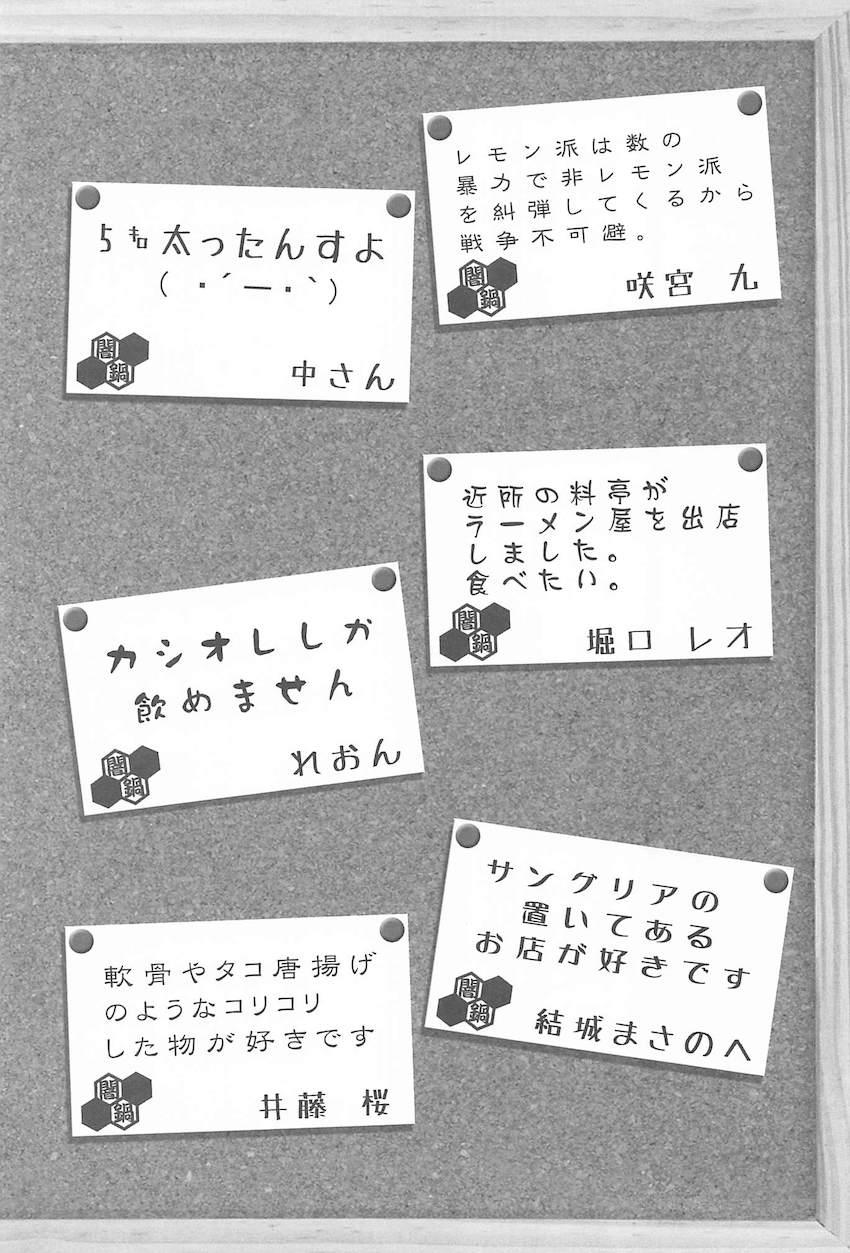 レモン派は数の
暴力で非レモン派
を糾弾してくるから
戦争不可避。
闇鍋
咲宮 九
5㌔太ったんすよ
（ ・´ー・｀）
闇鍋
中さん
近所の料亭が
ラーメン屋を出店
しました。
食べたい。
闇鍋
堀口 レオ
カシオレしか
飲めません
闇鍋
れおん
サングリアの
置いてある
お店が好きです
闇鍋
結城まさのへ
軟骨やタコ唐揚げ
のようなコリコリ
した物が好きです
闇鍋
井藤 桜